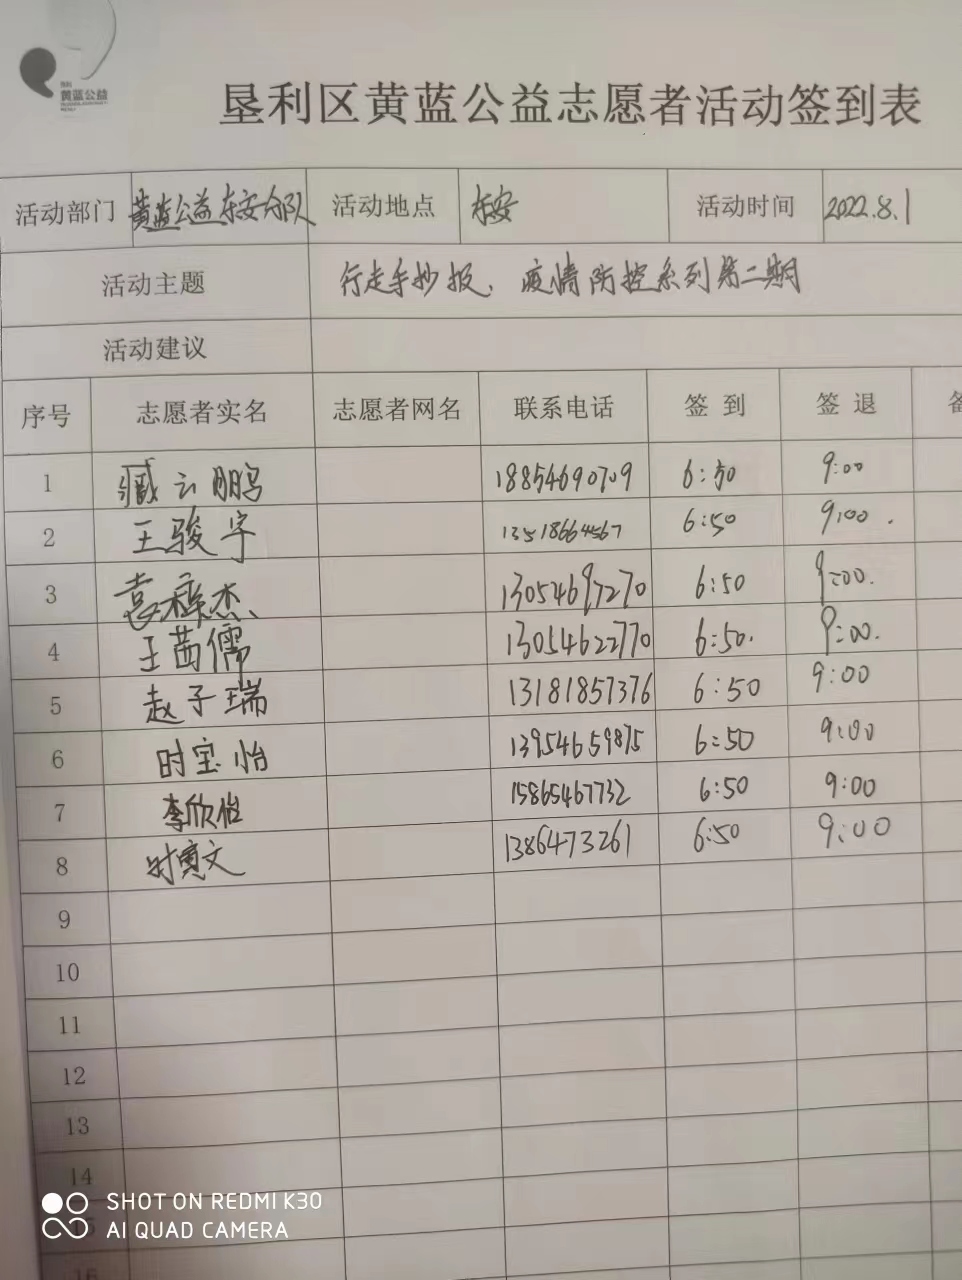 黄蓝公益
垦利区黄蓝公益志愿者活动签到表
活动部门 黄蓝公益东安分队 活动地点 东安 活动时间 2022.8.1
活动主题 行走手抄报、疫情防控系列第二期
活动建议
序号 志愿者实名 志愿者网名 联系电话 签 到 签 退
1 臧云鹏 18854690709 6:50 9:00
2 王骏宇 13518664567 6:50 9:00.
3 袁梓杰 13054697270 6:50 9:00.
4 王茜儒 13054622770 6:50. 9:00.
5 赵子瑞 13181857376 6:50 9:00
6 时宝怡 13954659875 6:50 9:00
7 李欣怡 15865467732 6:50 9:00
8 时寅文 1386473261 6:50 9:00
9
10
11
12
13
14
15
16
SHOT ON REDMI K30
AI QUAD CAMERA